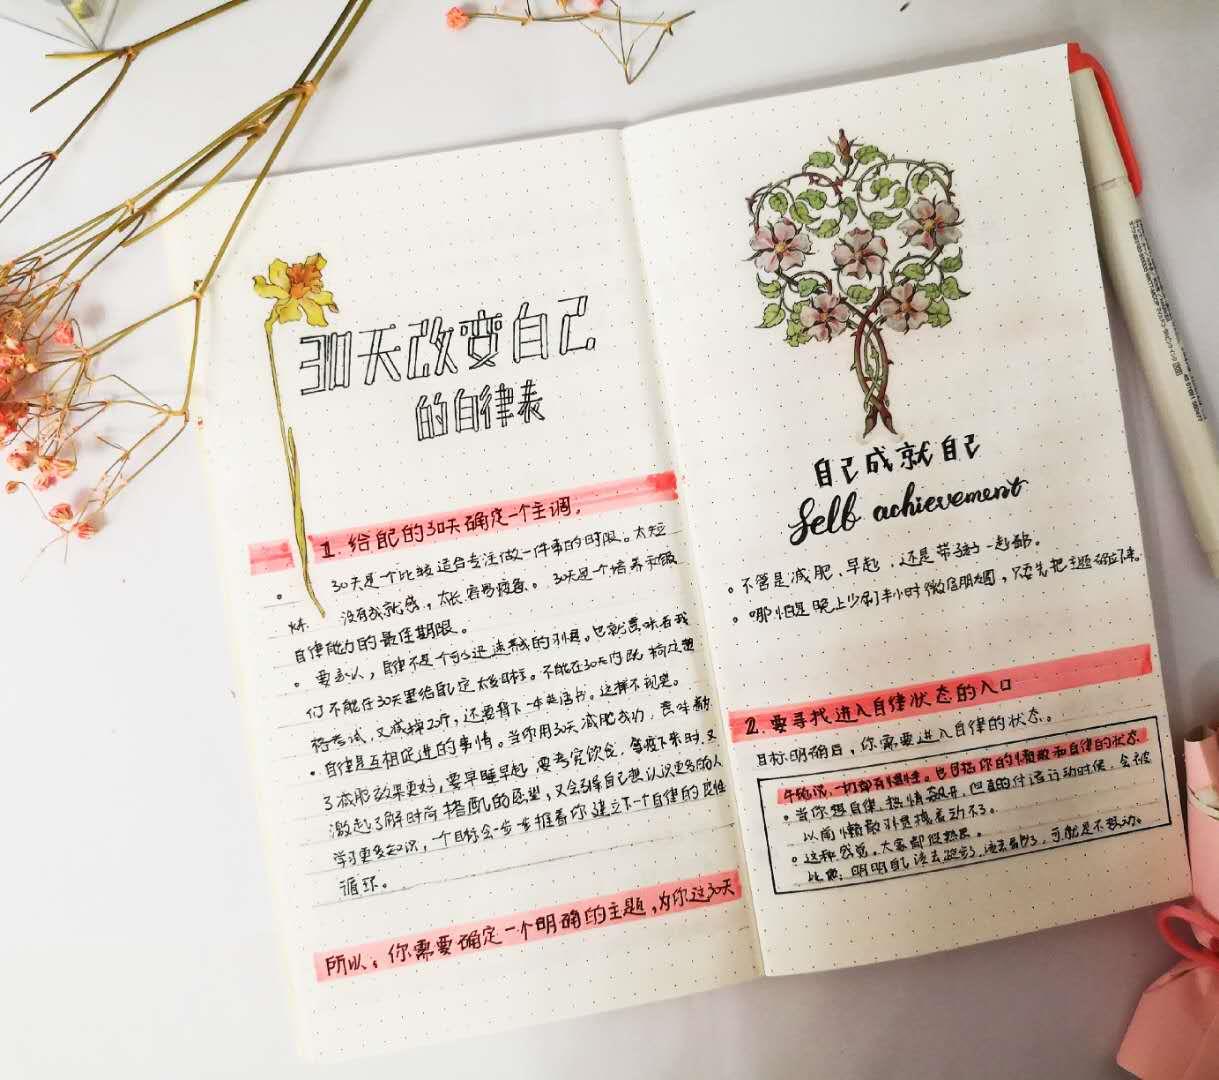 30天改变自己
的自律表
1. 给自己的30天确定一个主调。
。 30天是一个比较适合专注做一件事的时限。太短
没有成就感，太长容易疲惫。 30天是一个培养和锻
炼
自律能力的最佳期限。
。 要承认，自律不是一个可以迅速养成的习惯。也就意味着我
们不能在30天里给自己定太多目标。不能在30天内既
考试，又减掉20斤，还要 一本英语书。这样不现实。
• 自律是互相促进的事情。当你用30天减肥成功，意味着
了减肥效果更好，要早睡早起，要考究饮食，等瘦下来时，又
激起了解时尚搭配的愿望，又会 自己想认识更多的人
学习更多知识，一个目标会一步一步推着你建立下一个自律的良性
循环。
所以：你需要确定一个明确的主题，为你这30天
自己成就自己
Self achievement
。不管是减肥、早起，还是带孩子一起 。
。哪怕是晚上少刷半小时微信朋友圈，只要先把主题确定下来。
2. 要寻找进入自律状态的入口
目标明确后，你需要进入自律的状态。
牛顿说，一切都有惯性。也包括你的懒散和自律的状态
。当你想自律，热情 ，但真的付诸行动时候，会被
以前懒散习惯拽着动不了。
。这种感觉，大家都很熟悉。
比如：明明自己该去跑步了，该去看书了，可就是不想动。